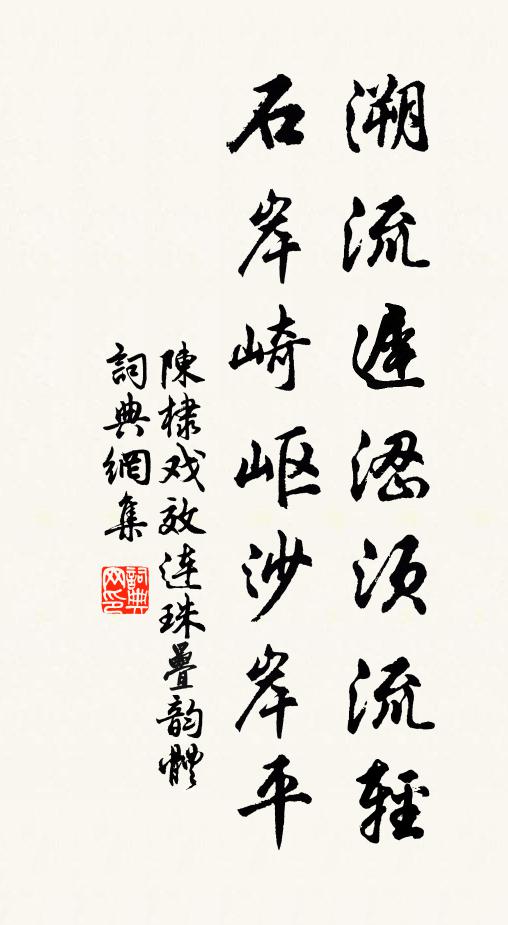 溯流遲涩顺流輕
石岸崎岖沙岸平
陳棣戏效连珠疊韵體
詞典網集
詞典
网印